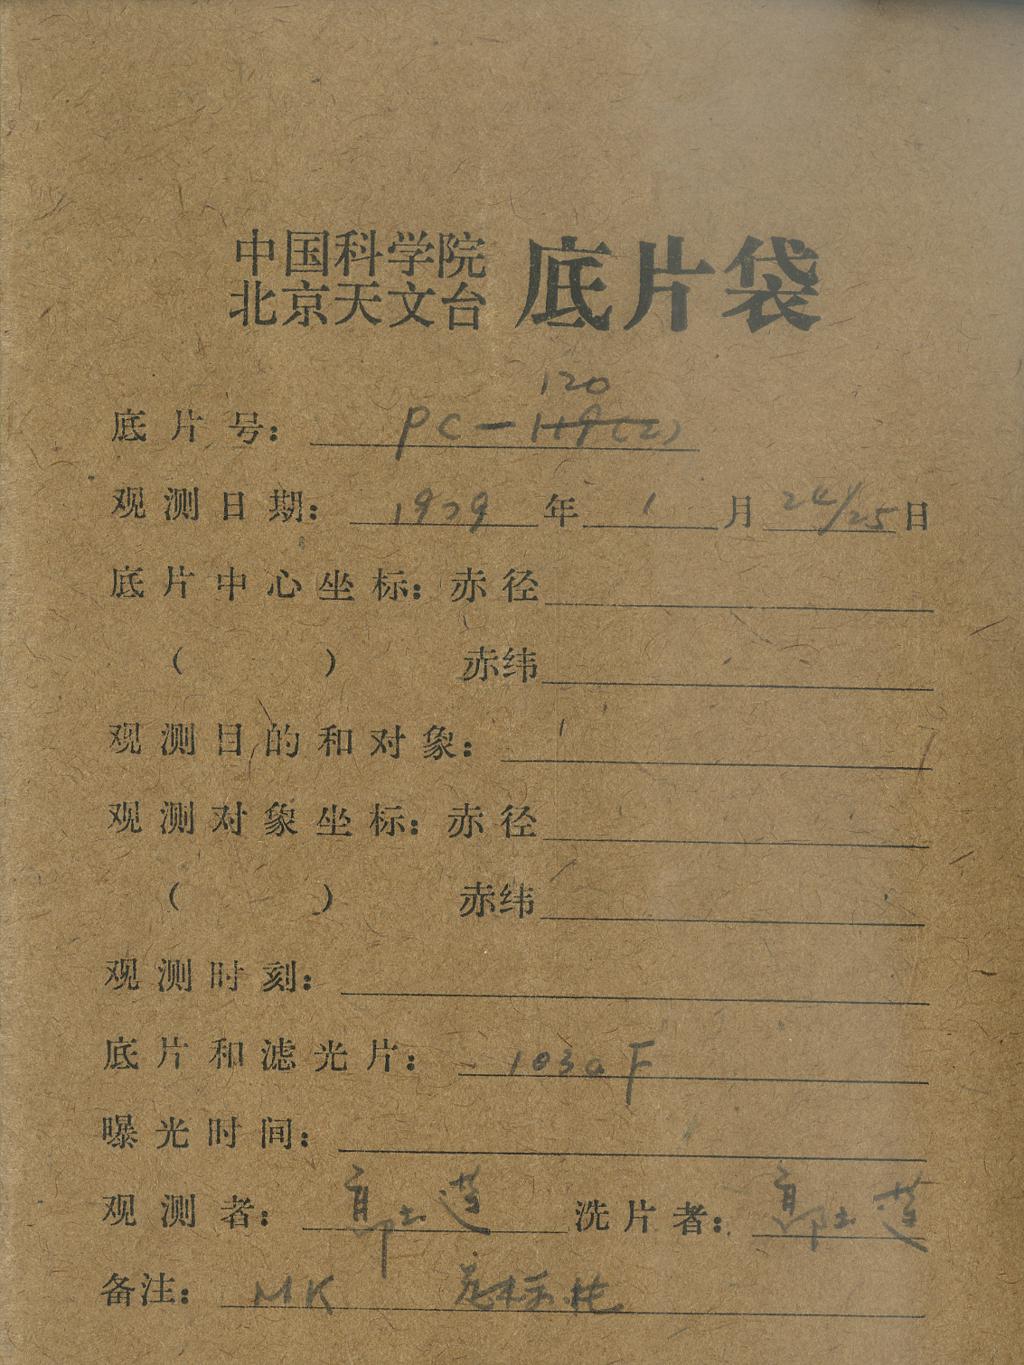 中国科学院
北京天文台 底片袋
120
底片号: PC-119(2)
观测日期: 1979年1月24/25日
底片中心坐标: 赤径
( ) 赤纬
观测目的和对象:
观测对象坐标: 赤径
( ) 赤纬
观测时刻:
底片和滤光片: 103aF
曝光时间:
观测者: 洗片者:
备注: MK